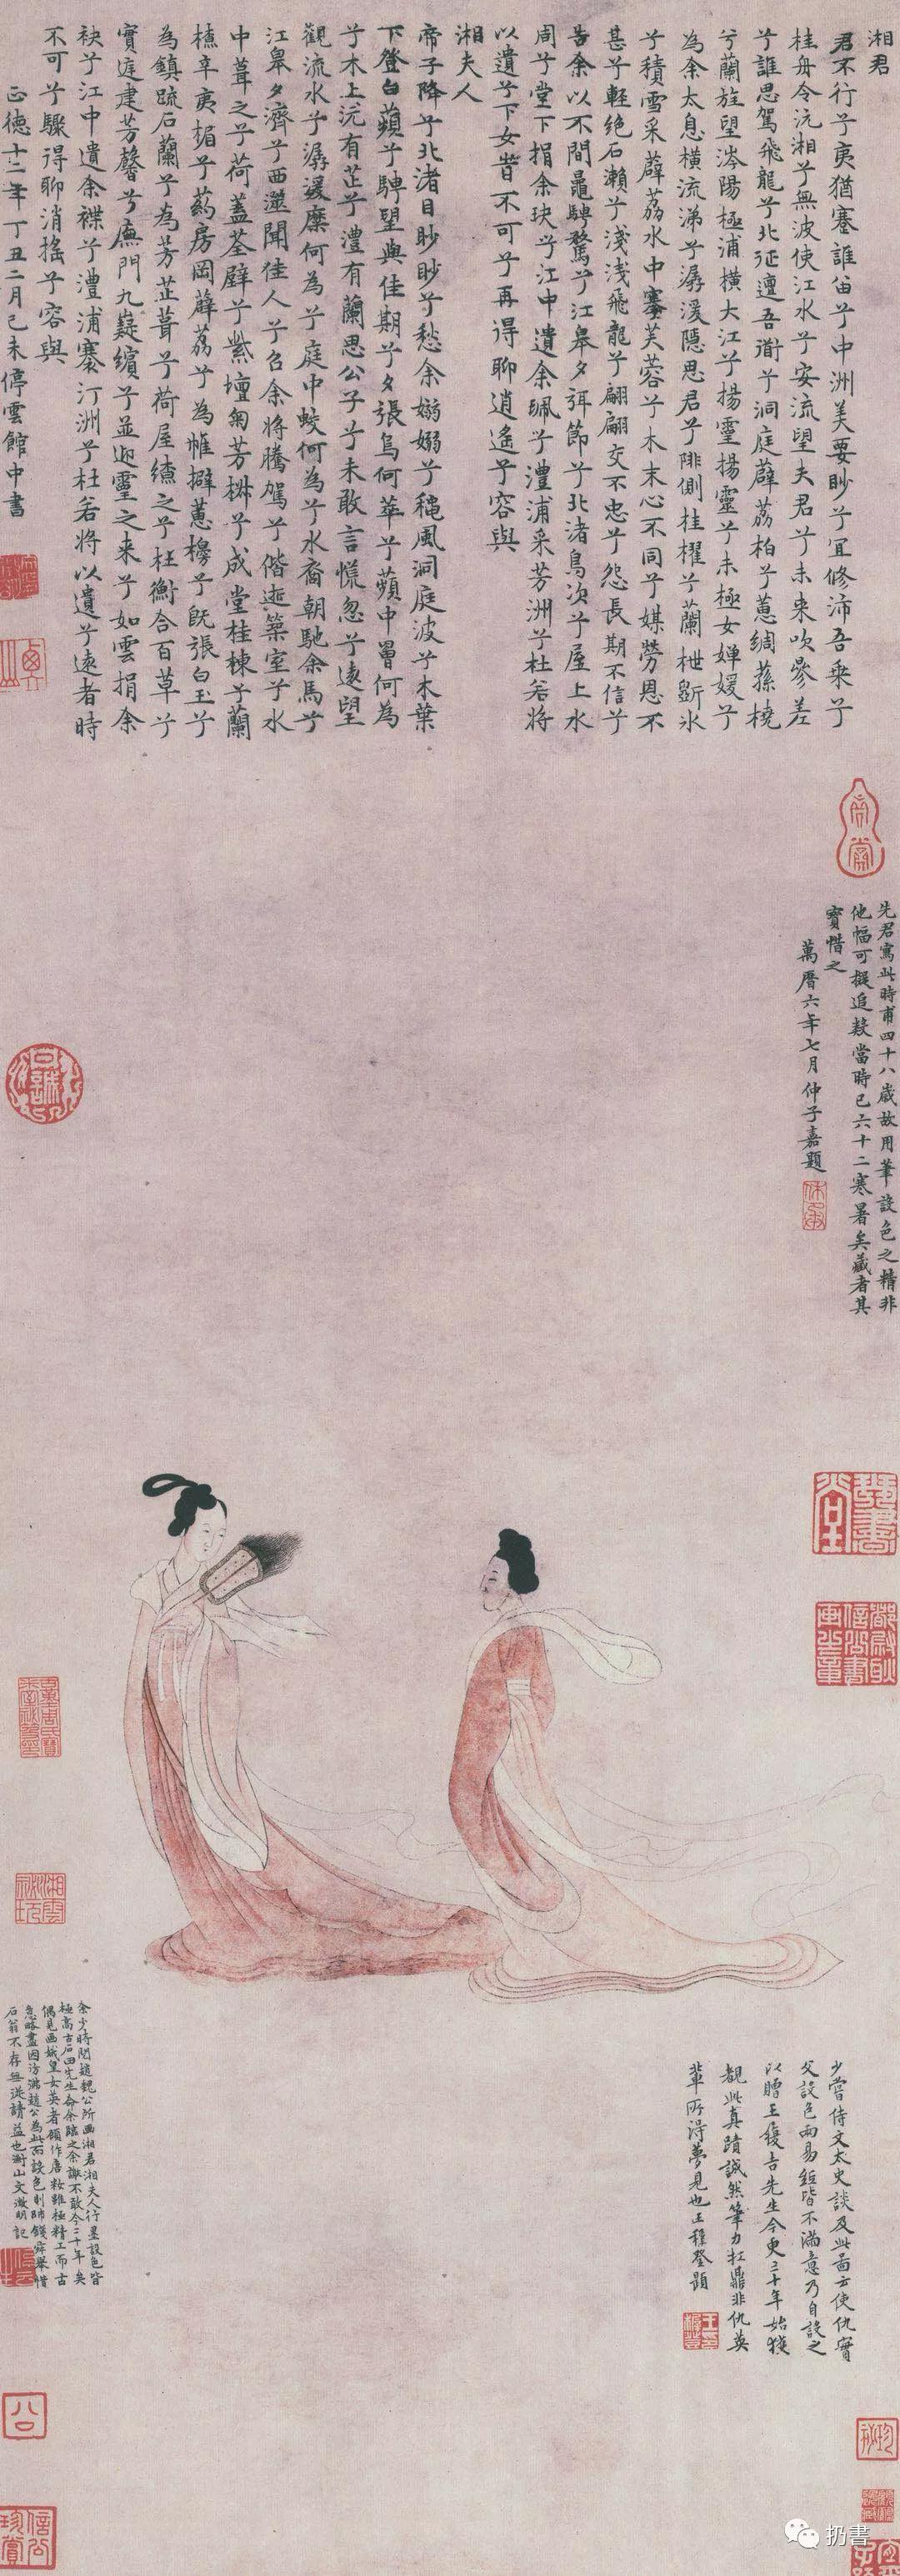 湘君
君不行兮夷猶蹇誰留兮中洲美要眇兮宜修沛吾乗兮
桂舟令沅湘兮無波使江水兮安流望夫君兮未来吹參差
兮誰思駕飛龍兮北征邅吾衜兮洞庭薜荔柏兮蕙綢蓀橈
兮蘭旌望涔陽極浦橫大江兮揚靈揚靈兮未極女嬋媛兮
為余太息橫流涕兮潺湲隱思君兮陫側桂櫂兮蘭枻斲氷
兮積雪采薜荔水中搴芙蓉兮木末心不同兮媒勞恩不
甚兮輕绝石瀨兮淺淺飛龍兮翩翩交不忠兮怨長期不信兮
告余以不閒鼂騁騖兮江皋夕弭節兮北渚鳥次兮屋上水
周兮堂下捐余玦兮江中遺余珮兮澧浦采芳洲兮杜若將
以遺兮下女旹不可兮再得聊逍遙兮容與
湘夫人
帝子降兮北渚目眇眇兮愁余嫋嫋兮穐風洞庭波兮木葉
下登白蘋兮騁望與佳期兮夕張鳥何萃兮蘋中罾何為
兮木上沅有芷兮澧有蘭思公子兮未敢言慌忽兮遠望
觀流水兮潺湲麋何為兮庭中蛟何為兮水裔朝馳余馬兮
江皋夕濟兮西澨聞佳人兮召余將騰駕兮偕逝築室兮水
中葺之兮荷蓋荃壁兮紫壇匊芳椒兮成堂桂棟兮蘭
橑辛夷楣兮葯房罔薜荔兮為帷擗蕙櫋兮既張白玉兮
為鎮疏石蘭兮為芳芷葺兮荷屋繚之兮杜衡合百草兮
實庭建芳馨兮廡門九嶷繽兮並迎靈之来兮如雲捐余
袂兮江中遺余褋兮澧浦搴汀洲兮杜若將以遺兮遠者時
不可兮驟得聊消搖兮容與
正德十二年丁丑二月己未停雲館中書
先君寫此時甫四十八歲故用筆設色之精非
他幅可擬追數當時已六十二寒暑矣藏者其
寶惜之
萬曆六年七月仲子嘉題
少嘗侍文太史談及此啚云使仇實
父設色兩易紙皆不滿意乃自設之
以贈王履吉先生今更三十年始獲
覩此真蹟誠然筆力扛鼎非仇英
輩所淂夢見也王穉登題
余少時閱趙魏公所画湘君湘夫人行墨設色皆
極高古石田先生命余臨之余謝不敢今二十年矣
偶見画娥皇女英者顧作唐粧雖極精工而古
意略盡因仿濔趙公為此而設色則師錢舜舉惜
石翁不存無從請益也衡山文徵明記
信公
珍賞
扔書